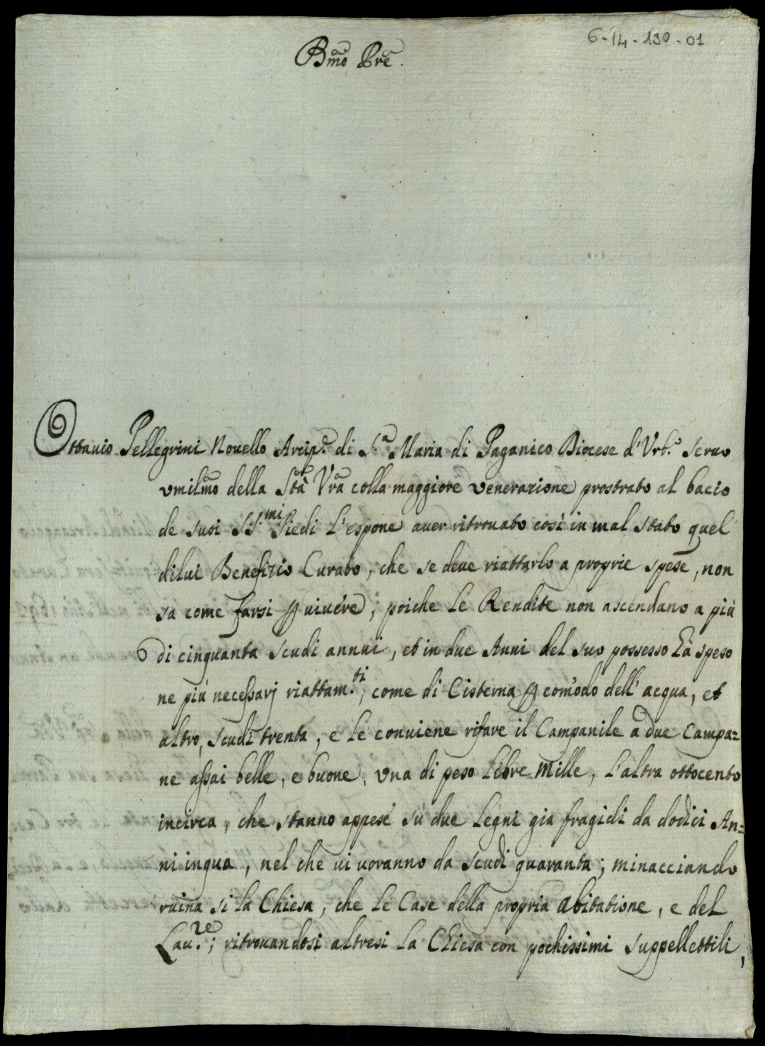 6-14-130-01
Bmo Pre.
Ottavio Pellegrini Novello Arcip.e di S.a Maria di Paganico Diocese d'Urb.o Servo
umilmo della Stà Vra colla maggiore venerazione prostrato al bacio
de suoi SS.mi Piedi L'espone aver ritrovato così in mal stato quel
dilui Benefizio Curato, che se deve riattarlo a proprie spese, non
sa come farsi p vivere; poiche le Rendite non ascendano a più
di cinquanta scudi annui, et in due Anni del suo possesso hà speso
ne più necessarj riattam.ti, come di Cisterna p comodo dell'acqua, et
altro, scudi trenta, e le conviene rifare il Campanile à due Campa=
ne assai belle, e buone, una di peso libre mille, l'altra ottocento
incirca, che stanno appese sù due Legni gia fragidi da dodici An=
ni inqua, nel che vi voranno da scudi quaranta; minacciando
ruina si la Chiesa, che le Case della propria abitatione, e del
Lau.re; ritrovandosi altresi la Chiesa con pochissimi suppellettili,